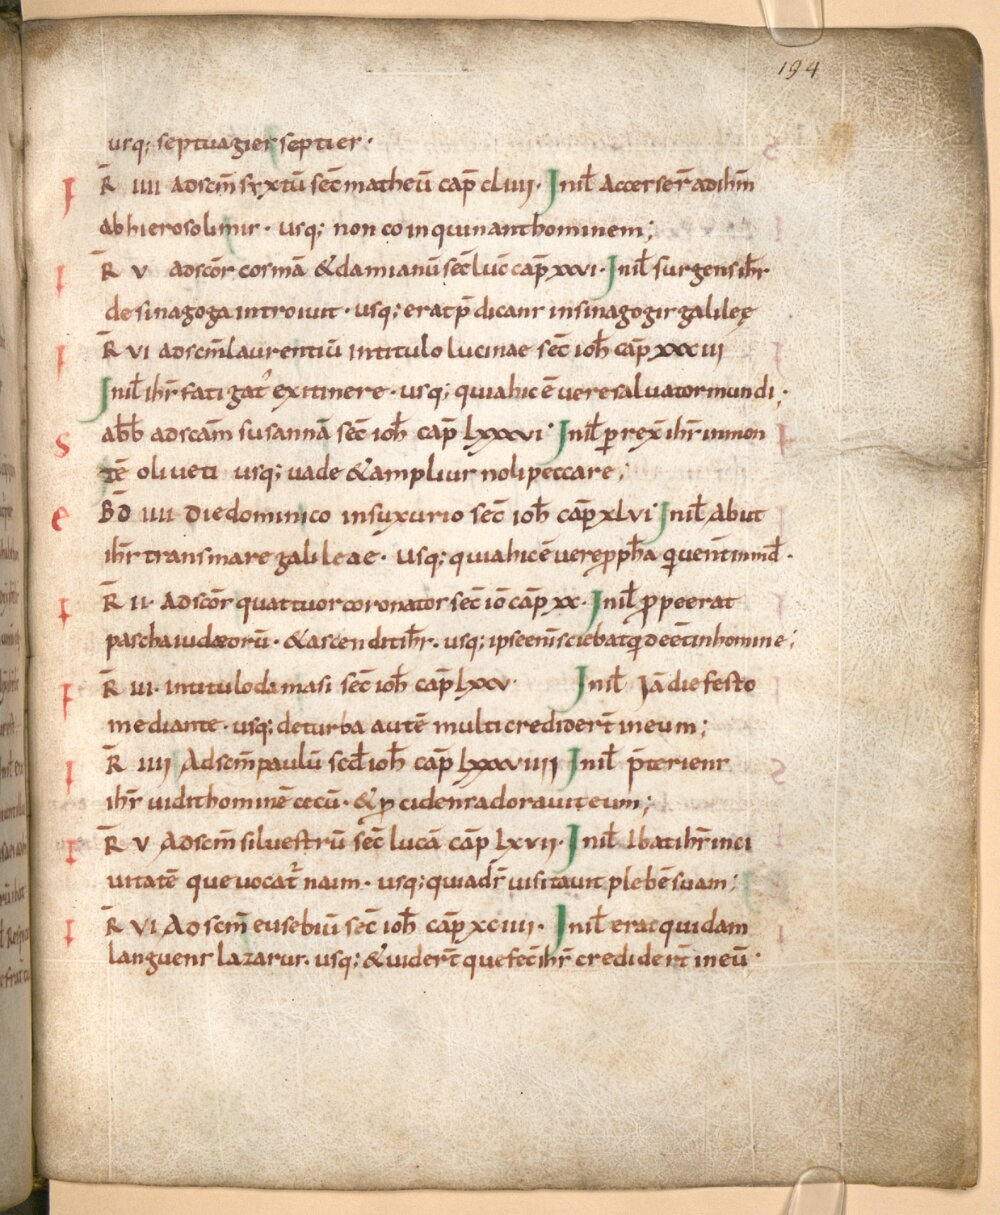 194
usq; septuagies septies·
F R̄ IIII ADSCM̄ syxtū SEC̄ matheū CAP̄ CLIIII· In iłł Accesser̄ ad ihm̄
ab hierosolimis· usq; non coinquinant hominem;
F R̄ V ADSCŌR cosmā & damianū SEC̄ LUC̄ CAP̄ XXVI· In iłł surgens ih̄s
de sinagoga introiuit· usq; erat p̄dicans in sinagogis galileę
F R̄ VI ADSCM̄ laurentiū in titulo lucinae SEC̄ IOH̄ CAP̄ XXXIII
In iłł ih̄s fatigat᾿ ex itinere· usq; quia hic ē uere saluator mundi·
S abb̄ ADSCĀM susannā SEC̄ IOH̄ CAP̄ LXXXVI· In iłł p̱rex̄ ih̄s in mon
tē oliueti usq; uade & amplius noli peccare;
e F̄D̄ IIII Die dominico in suxurio SEC̄ IOH̄ CAP̄ XLVI· In iłł Abiit
ih̄s trans mare galileae· usq; quia hic ē uere p̱ph̄a qui uent̄ in md̄·
F R̄ II· ADSCŌR quattuor coronator̄ SEC̄ IŌ CAP̄ XX· In iłł p̱pe erat
pascha iudæorū· & ascendit ih̄s· usq; ipse eni sciebat qd eēt in homine;
F R̄ III· in titulo damasi SEC̄ IOH̄ CAP̄ LXXV· In iłł Iā die festo
mediante· usq; de turba autē multi crediDer̄t in eum;
F R̄ IIII ADSCM̄ paulū SED̄ IOH̄ CAP̄ LXXXVIIII In iłł p̄teriens
ih̄s uidit hominē cecū· & p̱cidens adorauit eum;
F R̄ V ADSCM̄ siluestrū SEC̄ lucā CAP̄ LXVII· In iłł Ibat ih̄s in ci
uitatē que uocat᾿ naim· usq; quia dš uisitauit plebē suam;
F R̄ VI ADSCM̄ eusebiū SEC̄ IOH̄ CAP̄ XCIIII· In iłł erat quidam
languens lazarus· usq; & uider̄t que fec̄ ih̄s credider̄t in eū·